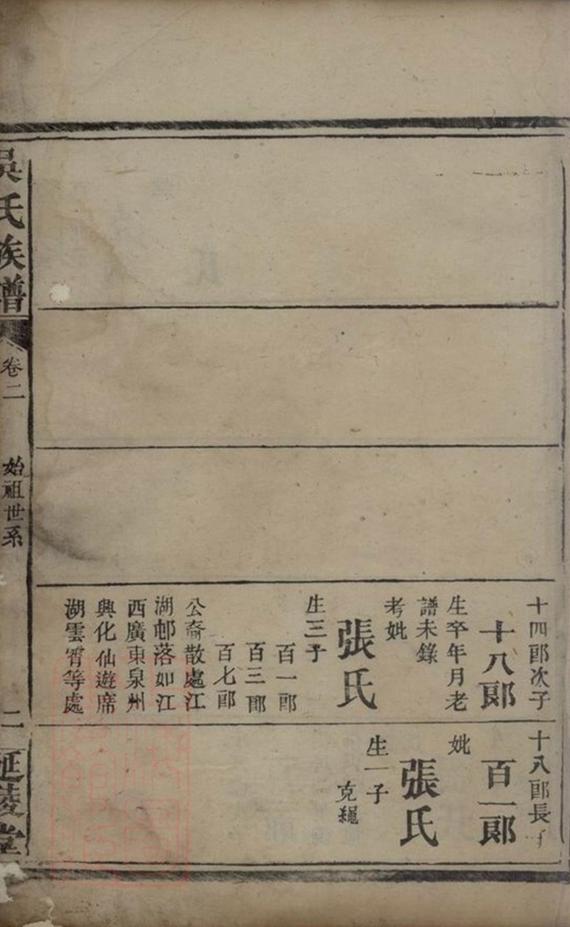 十四郎次子
十八郞
生卒年月老
譜未錄
考妣
張氏
生三子
百一郎
百三郎
百七郎
公裔散處江
湖邨落如江
西廣東泉州
興化仙遊席
湖雲霄等處
十八郎長子
百一郞
妣
張氏
生一子
克繩
吳氏族譜
卷二
始祖世系
二
延陵堂